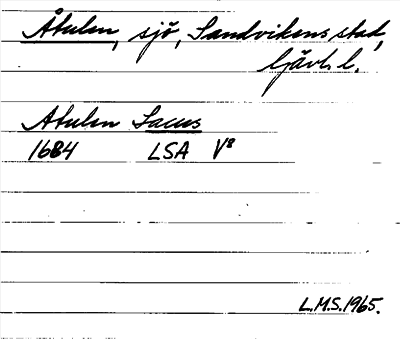 Åtulen, sjö, Sandvikens stad,
Gävl. l.
Atulen Lacus
1684 LSA V8
L.M.S.1965.